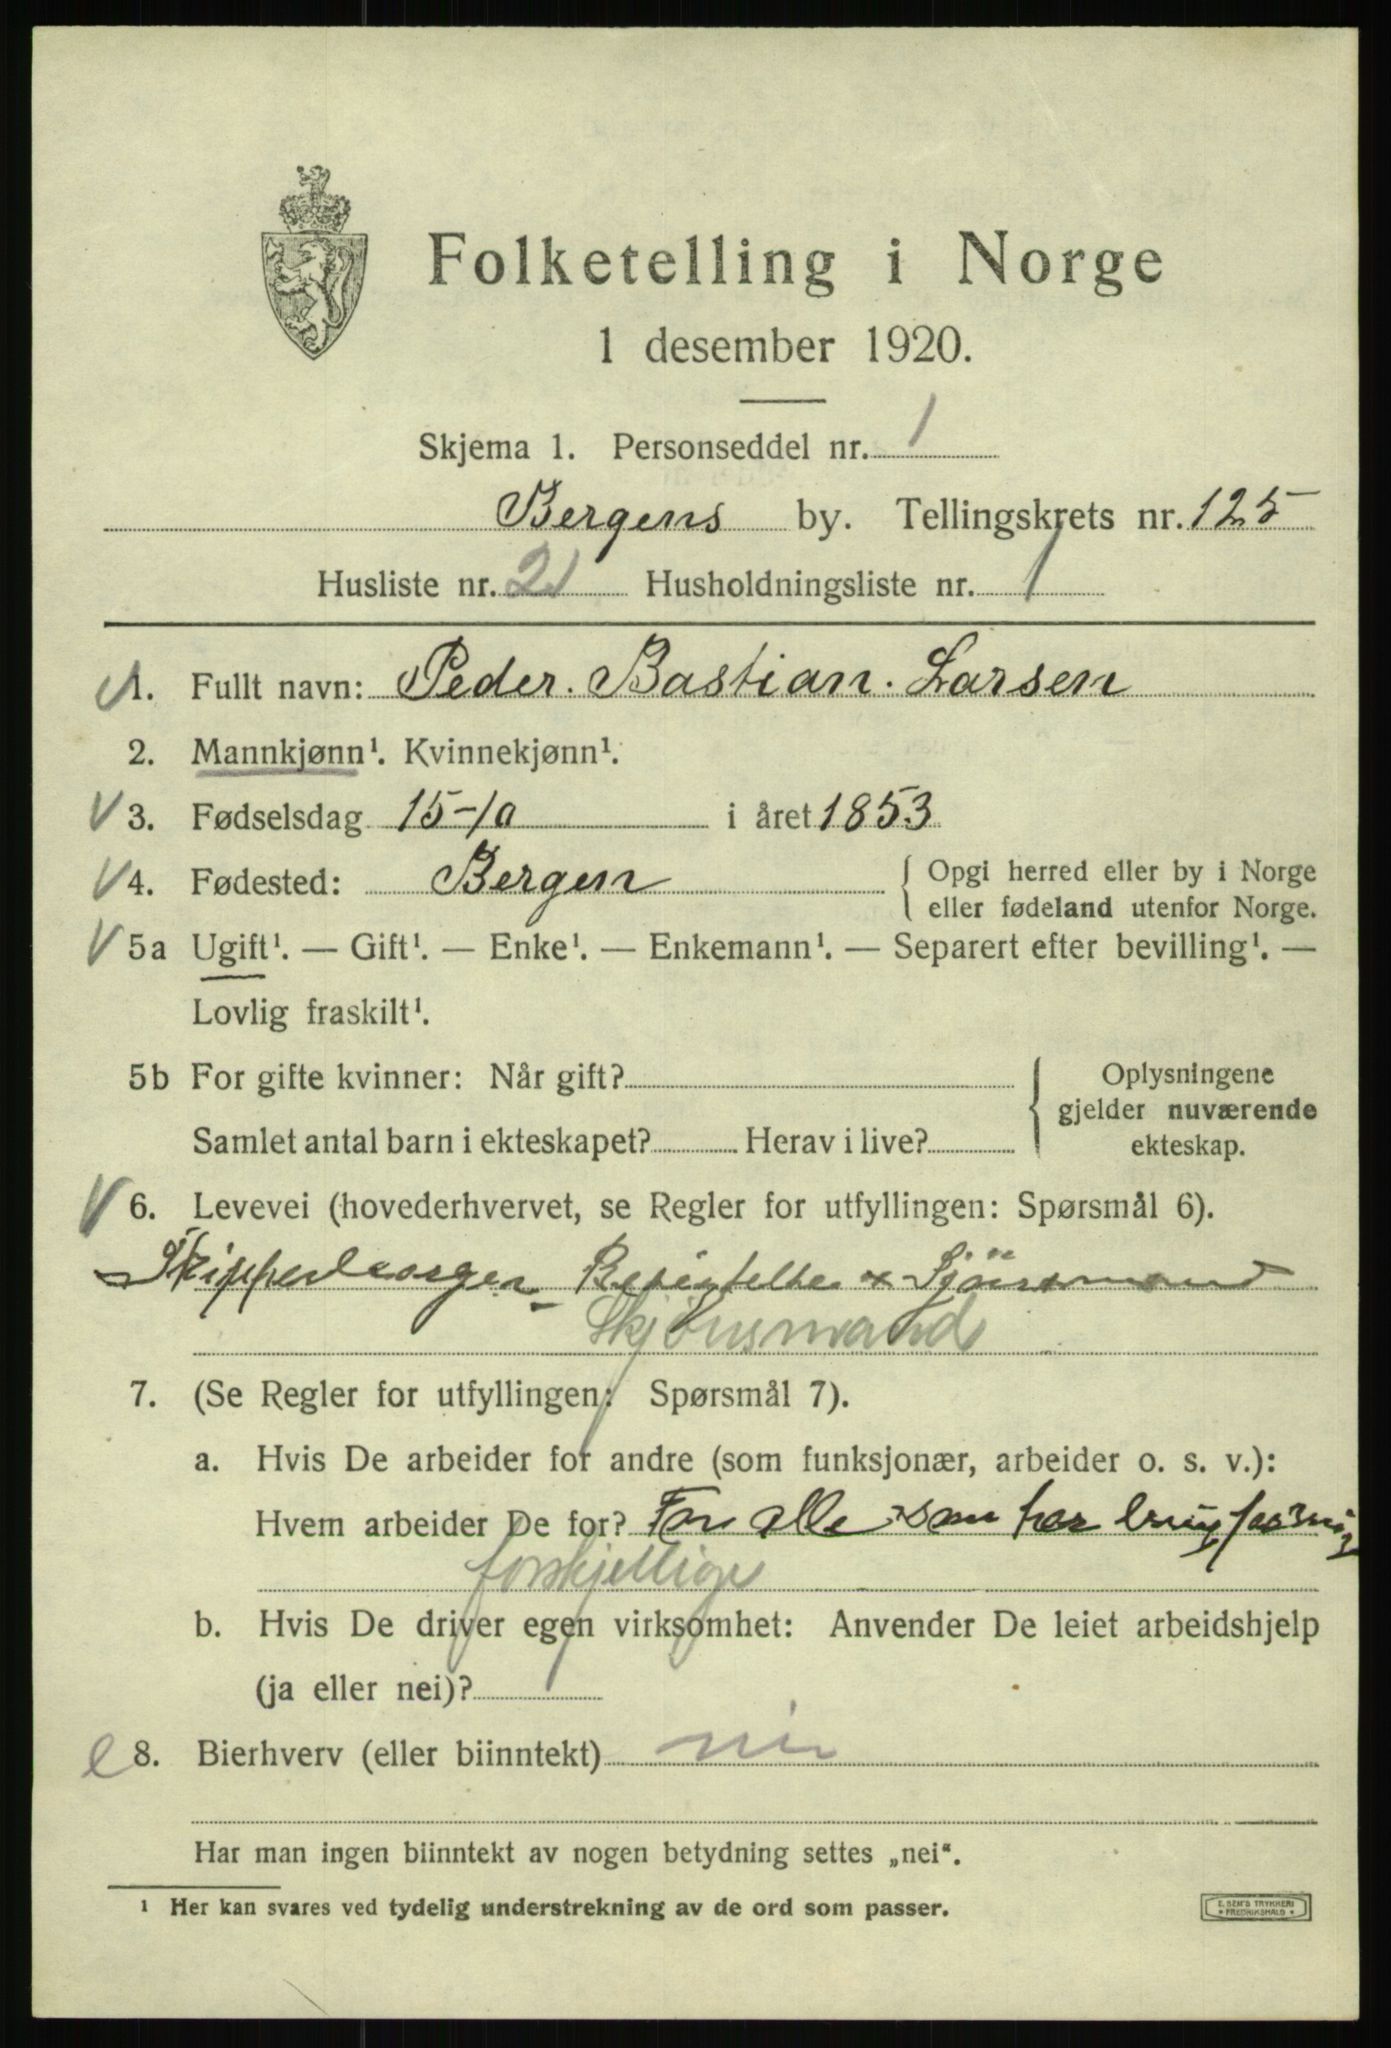 Folketelling i Norge
1 desember 1920.
Skjema 1. Personseddel nr. 1
Bergens by. Tellingskrets nr. 125
Husliste nr. 21 Husholdningsliste nr. 1
1. Fullt navn: Peder. Bastian. Larsen
2. Mannkjønn¹. Kvinnekjønn¹.
3. Fødselsdag 15-10 i året 1853
4. Fødested: Bergen { Opgi herred eller by i Norge
eller fødeland utenfor Norge.
5a Ugift¹. — Gift¹. — Enke¹. — Enkemann¹. — Separert efter bevilling¹. —
Lovlig fraskilt¹.
5b For gifte kvinner: Når gift? { Oplysningene
gjelder nuværende
Samlet antal barn i ekteskapet? Herav i live? ekteskap.
6. Levevei (hovederhvervet, se Regler for utfyllingen: Spørsmål 6).
Skipperborger
Skjønsmand
7. (Se Regler for utfyllingen: Spørsmål 7).
a. Hvis De arbeider for andre (som funksjonær, arbeider o. s. v.):
Hvem arbeider De for? For alle som har brug for mig
forskjellige
b. Hvis De driver egen virksomhet: Anvender De leiet arbeidshjelp
(ja eller nei)?
8. Bierhverv (eller biinntekt) nei
Har man ingen biinntekt av nogen betydning settes „nei“.
¹ Her kan svares ved tydelig understrekning av de ord som passer.
E. SEM'S TRYKKERI
FREDRIKSHALD